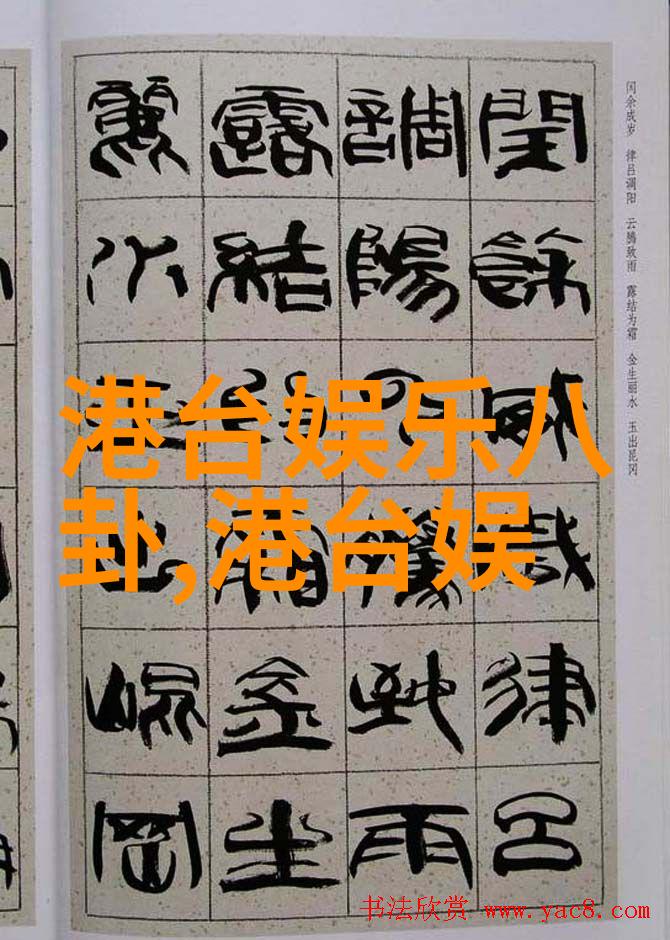 闰余成岁 律吕调阳 云腾致雨 露结为霜 金生丽水 玉出昆冈
閏餘成歲律呂
調陽云騰致雨
露結為霜金生
麗水玉出崐岡
港台娱乐八
卦,港台娱
书法欣赏 www.yac8.com